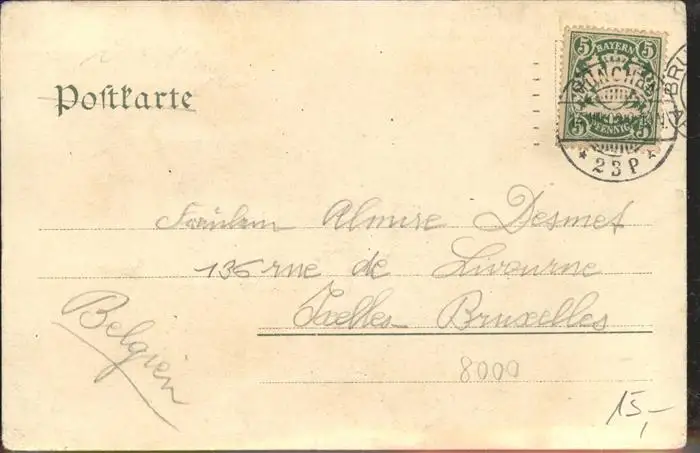 Postkarte
5 BAYERN 5
MÜNCHEN
5 PFENNIG 5
* 23P *
BRU
Fräulein Almire Desmet
136 rue de Livourne
Ixelles Bruxelles
Belgien
8000
15,-